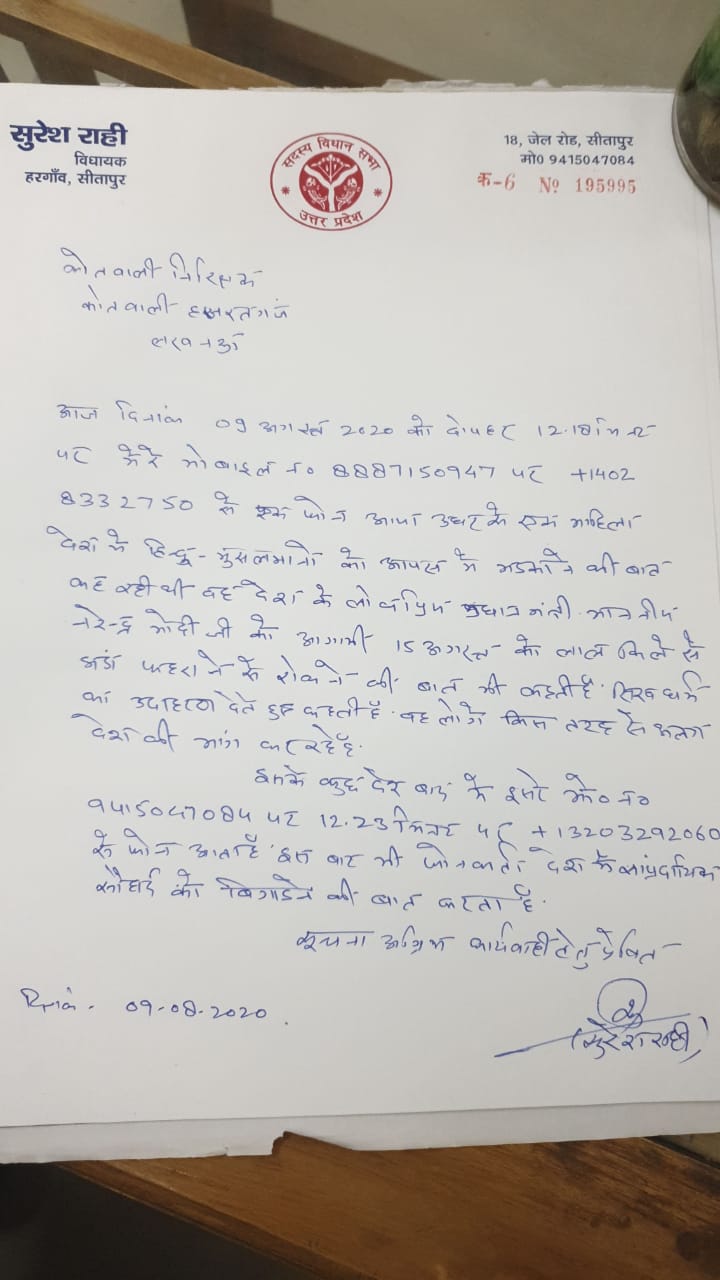 सुरेश राही
विधायक
हरगाँव, सीतापुर
सदस्य विधान सभा
उत्तर प्रदेश
18, जेल रोड, सीतापुर
मो0 9415047084
क-6 No 195995
कोतवाली निरिक्षक
कोतवाली हजरतगंज
लखनऊ
आज दिनांक 09 अगस्त 2020 को दोपहर 12.18 मिनट
पर मेरे मोबाइल न० 8887150947 पर +1402
8332750 से एक फोन आया उधर के एक महिला
देश में हिन्दू-मुसलमानो को आपस में भडकाने की बात
कह रही थी वह देश के लोकप्रिय प्रधान मंत्री माननीय
नरेन्द्र मोदी जी को आगामी 15 अगस्त को लाल किले से
झंडा फहराने से रोकने की बात भी कहती है. सिख धर्म
का उदाहरण देते हुए कहती है. वह लोग किस तरह से अलग
देश की मांग कर रहे है.
इसके कुछ देर बाद में दूसरे मो० न०
9415047084 पर 12.23 मिनट पर +13203292060
से फोन आता है. इस बार भी फोनकर्ता देश के सांप्रदायिक
सौहार्द को बिगाडने की बात करता है.
सूचना अग्रिम कार्यवाही हेतु प्रेषित
दिनांक - 09-08-2020.
(सुरेश राही)